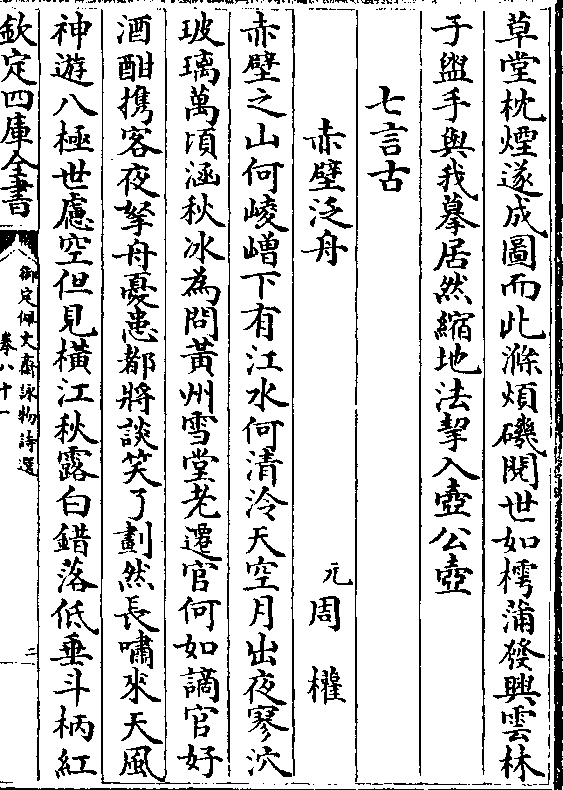 草堂枕煙遂成圖而此滌煩磯閱世如樗蒲發興雲林
子盥手與我摹居然縮地法挈入壺公壺
七言古
赤壁泛舟
元周權
赤壁之山何崚嶒下有江水何清泠天空月出夜寥泬
玻璃萬頃涵秋冰為問黃州雪堂老遷官何如謫官好
酒酣携客夜拏舟憂患都將談笑了劃然長嘯來天風
神遊八極世慮空但見橫江秋露白錯落低垂斗柄紅
欽定四庫全書
御定佩文齋詠物詩選
卷八十一
三